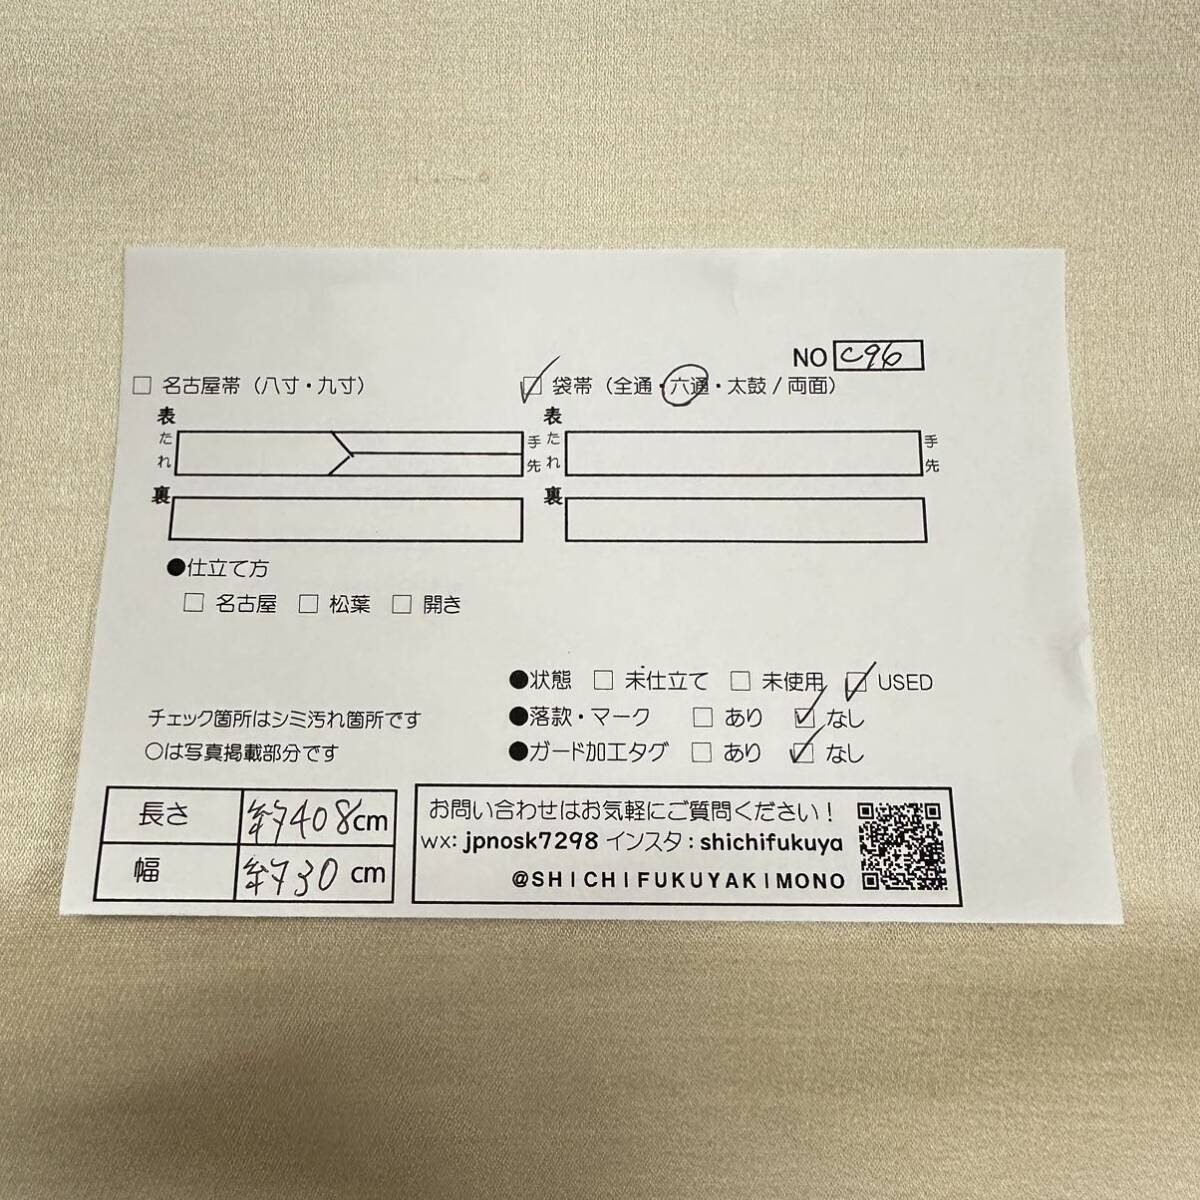 NO C96
□ 名古屋帯（八寸・九寸）
☑ 袋帯（全通・六通・太鼓/両面）
表
たれ
手先
裏
表
たれ
手先
裏
●仕立て方
□ 名古屋 □ 松葉 □ 開き
●状態 □ 未仕立て □ 未使用 ☑ USED
●落款・マーク □ あり ☑ なし
●ガード加工タグ □ あり ☑ なし
チェック箇所はシミ汚れ箇所です
○は写真掲載部分です
長さ 約408cm
幅 約30cm
お問い合わせはお気軽にご質問ください！
wx: jpnosk7298 インスタ：shichifukuya
@SHICHIFUKUYAKIMONO